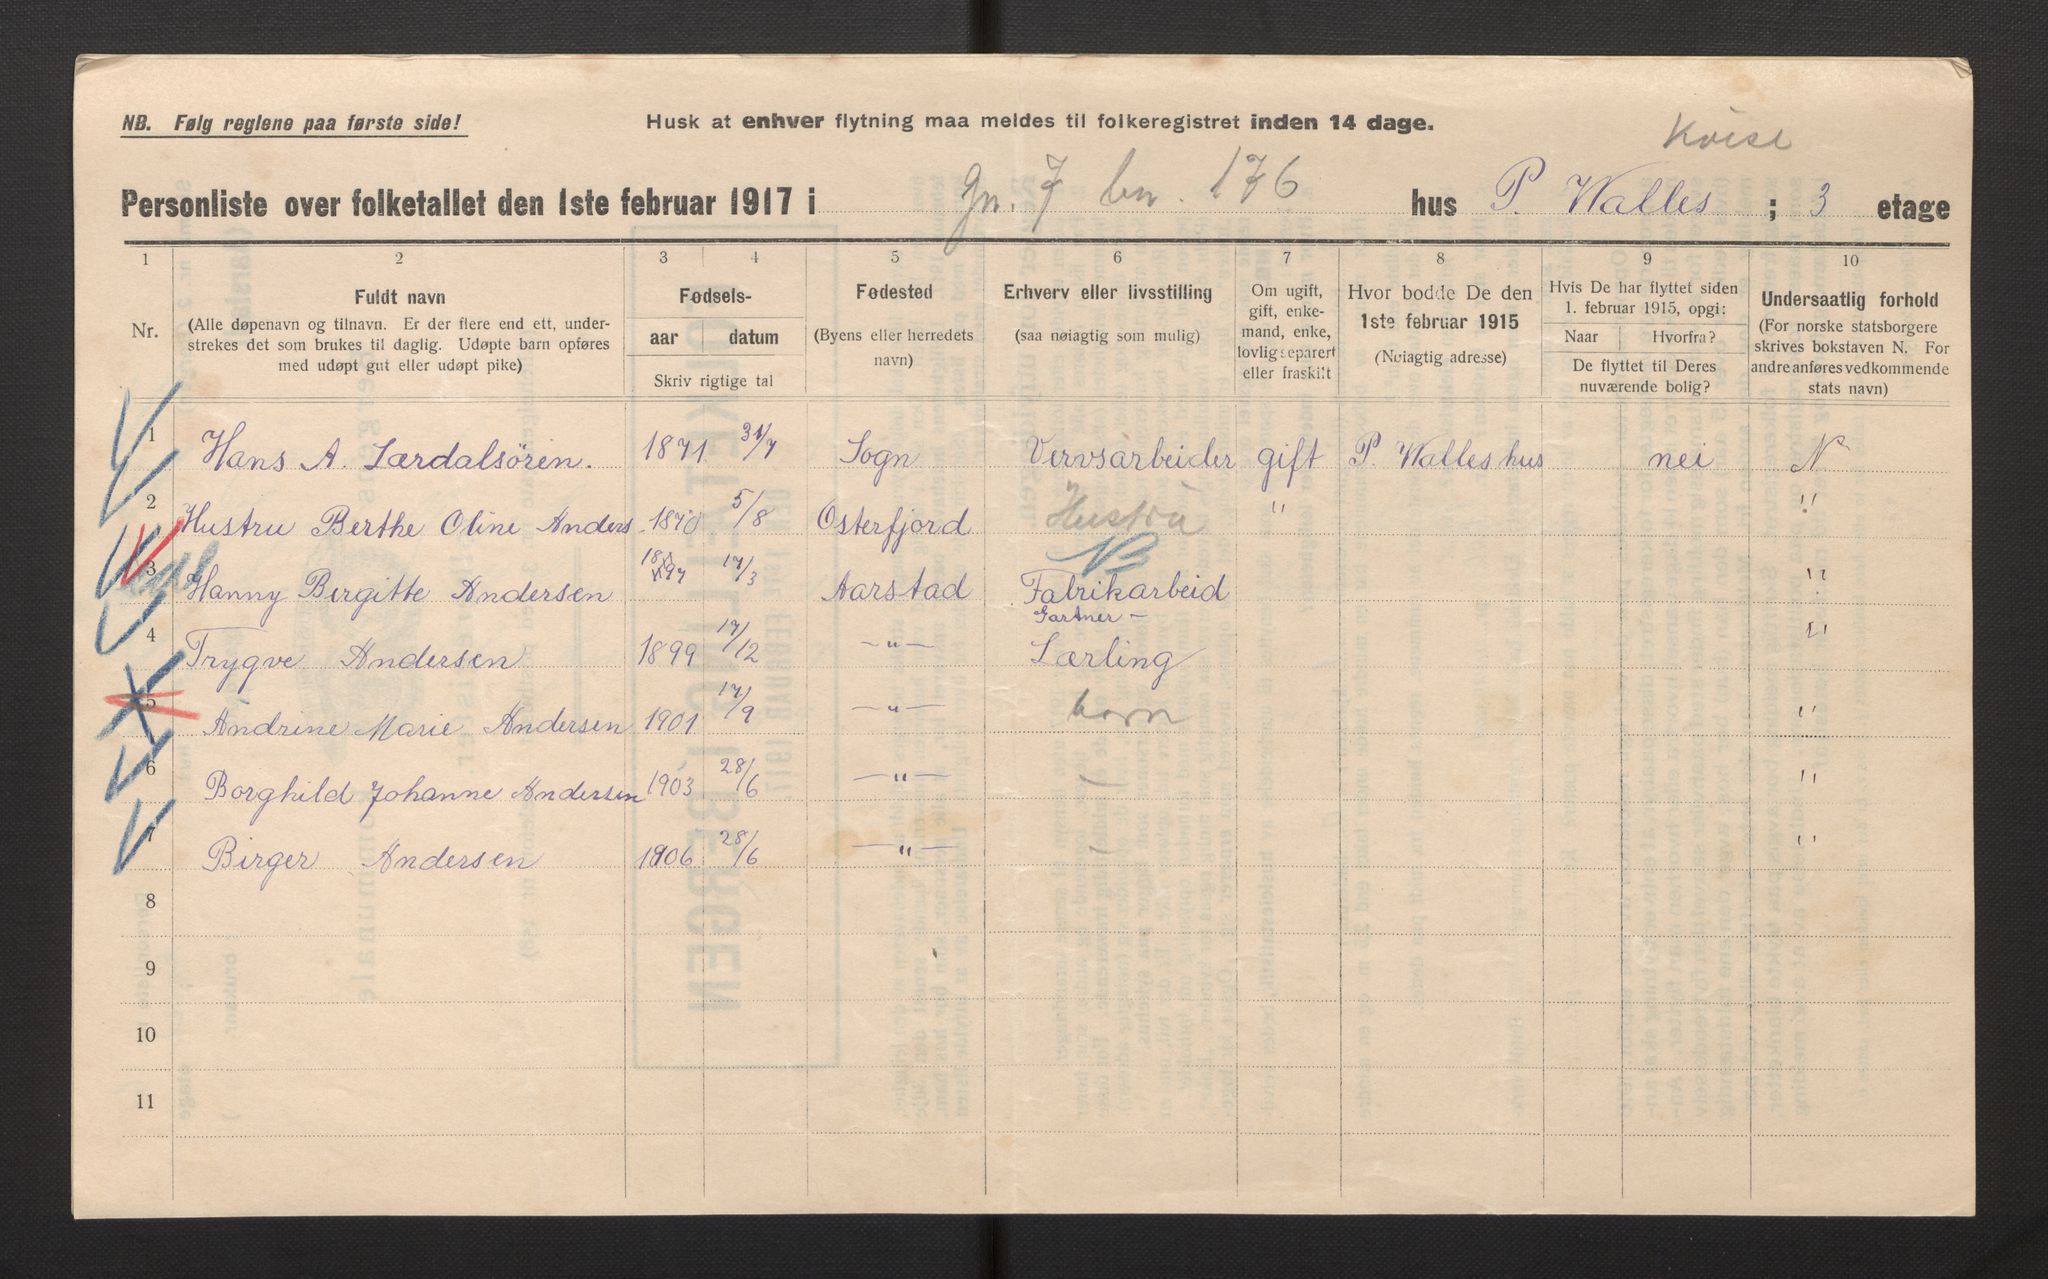 NB. Følg reglene paa første side!
Husk at enhver flytning maa meldes til folkeregistret inden 14 dage.
Kvist
Personliste over folketallet den 1ste februar 1917 i Gn. 7 bn. 176 hus P. Walles ; 3 etage
1 2 3 4 5 6 7 8 9 10
Nr.
Fuldt navn
(Alle døpenavn og tilnavn. Er der flere end ett, under-
strekes det som brukes til daglig. Udøpte barn opføres
med udøpt gut eller udøpt pike)
Fødsels-
aar datum
Skriv rigtige tal
Fødested
(Byens eller herredets
navn)
Erhverv eller livsstilling
(saa nøiagtig som mulig)
Om ugift,
gift, enke-
mand, enke,
lovlig separert
eller fraskilt
Hvor bodde De den
1ste februar 1915
(Nøiagtig adresse)
Hvis De har flyttet siden
1. februar 1915, opgi:
Naar Hvorfra?
De flyttet til Deres
nuværende bolig?
Undersaatlig forhold
(For norske statsborgere
skrives bokstaven N. For
andre anføres vedkommende
stats navn)
1 Hans A. Lærdalsören. 1871 31/7 Sogn Vervsarbeider gift P. Walles hus nei N
2 Hustru Berthe Oline Anders 1870 5/8 Osterfjord Hustru " "
3 Hanny Birgitte Andersen 1897 17/3 Aarstad Fabrikarbeid "
4 Trygve Andersen 1899 17/12 —"— Gartner-
Lærling "
5 Andrine Marie Andersen 1901 17/9 —"— barn "
6 Borghild Johanne Andersen 1903 28/6 —"— / "
7 Birger Andersen 1906 28/6 —"— / "
8
9
10
11